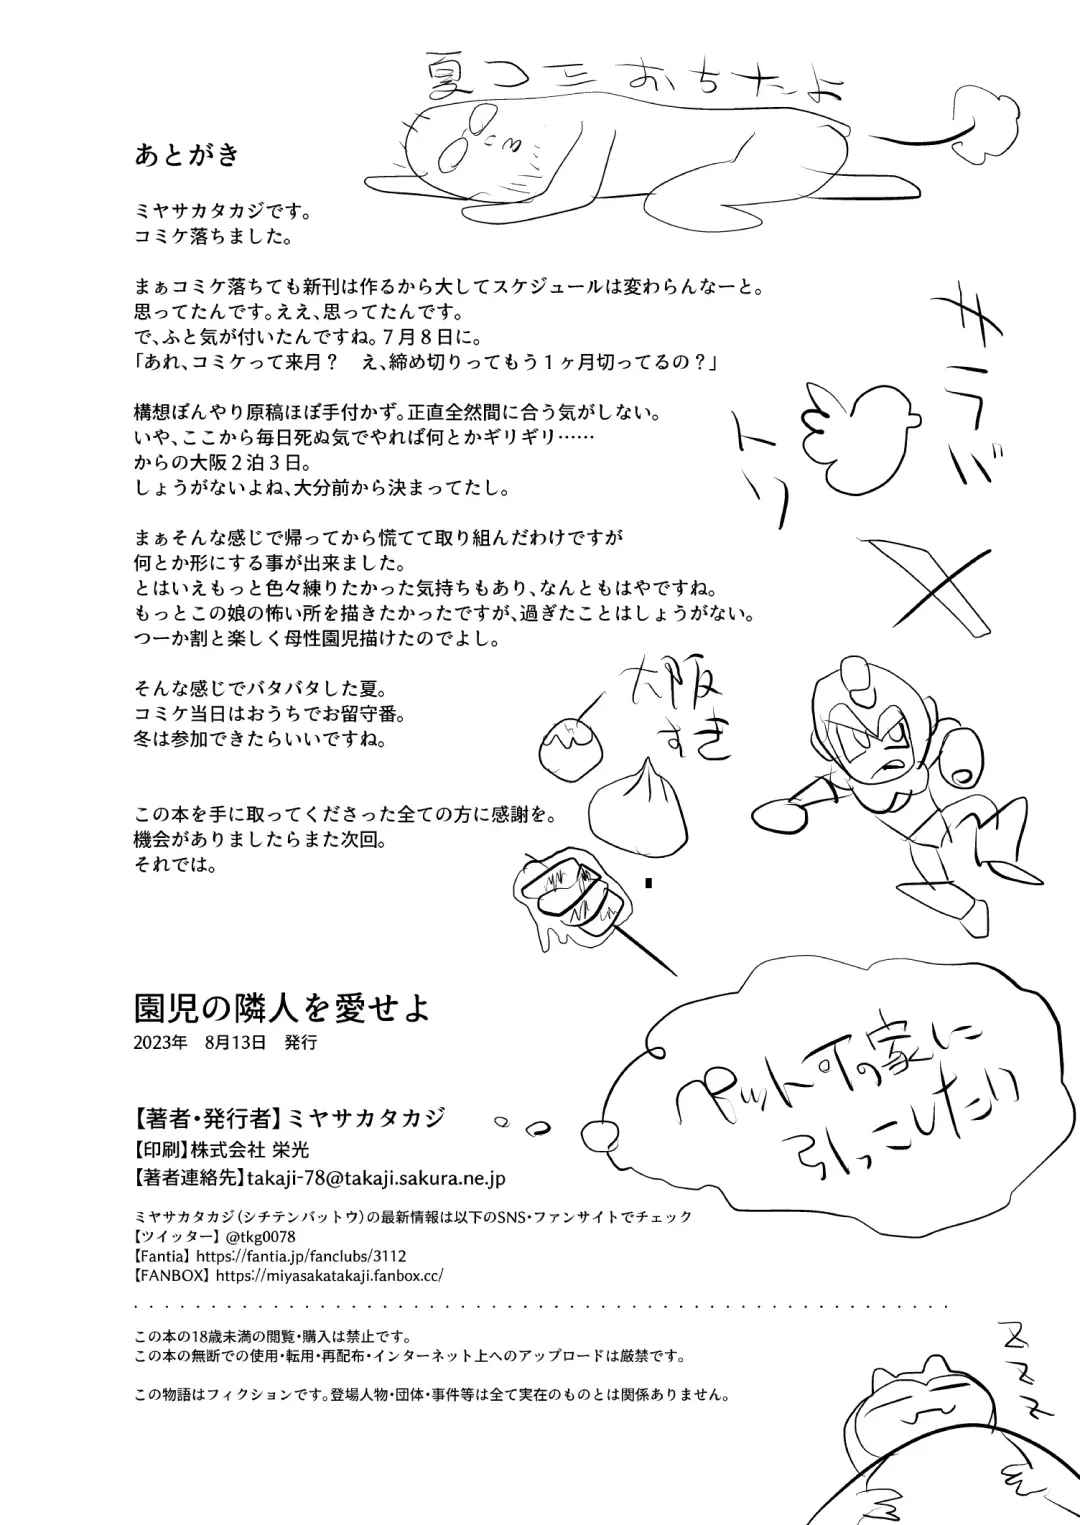 夏コミおちたよ
あとがき
ミヤサカタカジです。
コミケ落ちました。
まぁコミケ落ちても新刊は作るから大してスケジュールは変わらんなーと。
思ってたんです。ええ、思ってたんです。
で、ふと気が付いたんですね。7月8日に。
「あれ、コミケって来月？　え、締め切りってもう1ヶ月切ってるの？」
構想ぼんやり原稿ほぼ手付かず。正直全然間に合う気がしない。
いや、ここから毎日死ぬ気でやれば何とかギリギリ……
からの大阪2泊3日。
しょうがないよね、大分前から決まってたし。
まぁそんな感じで帰ってから慌てて取り組んだわけですが
何とか形にする事が出来ました。
とはいえもっと色々練りたかった気持ちもあり、なんともはやですね。
もっとこの娘の怖い所を描きたかったですが、過ぎたことはしょうがない。
つーか割と楽しく母性園児描けたのでよし。
そんな感じでバタバタした夏。
コミケ当日はおうちでお留守番。
冬は参加できたらいいですね。
この本を手に取ってくださった全ての方に感謝を。
機会がありましたらまた次回。
それでは。
サラバ
トリ
X
大阪
すき
ペット可の家に
引っこしたい
園児の隣人を愛せよ
2023年　8月13日　発行
【著者・発行者】ミヤサカタカジ
【印刷】株式会社 栄光
【著者連絡先】takaji-78@takaji.sakura.ne.jp
ミヤサカタカジ（シチテンバットウ）の最新情報は以下のSNS・ファンサイトでチェック
【ツイッター】 @tkg0078
【Fantia】 https://fantia.jp/fanclubs/3112
【FANBOX】 https://miyasakatakaji.fanbox.cc/
この本の18歳未満の閲覧・購入は禁止です。
この本の無断での使用・転用・再配布・インターネット上へのアップロードは厳禁です。
この物語はフィクションです。登場人物・団体・事件等は全て実在のものとは関係ありません。
Z
Z
Z
Z